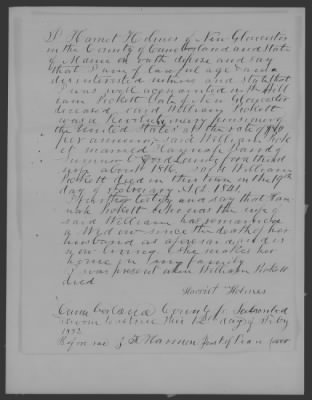 I Harriet Holmes of New Gloucester
in the County of Cumberland and State
of Maine on oath depose and say
that I am of lawful age and a
disinterested witness and state that
I was well acquainted with Will
iam Rokett late of New Gloucester
deceased, said William Rokett
was a Revolutionary pensioner of
the United States at the rate of $80
per annum, said William Rok
ett married
Sumner Oxford County for a third
wife about 1816 said William
Rokett died in this town on the 19th
day of February A.D. 1841,
I further certify and say that
Rokett who was the wife of
said William has remained
a Widow since the death of her
husband as aforesaid and is
now living & she makes her
home in my family
I was present when William Rokett
died
Harriet Holmes
Cumberland County ss
sworn to before me this 12 day of
1853
Before me Just of Peace